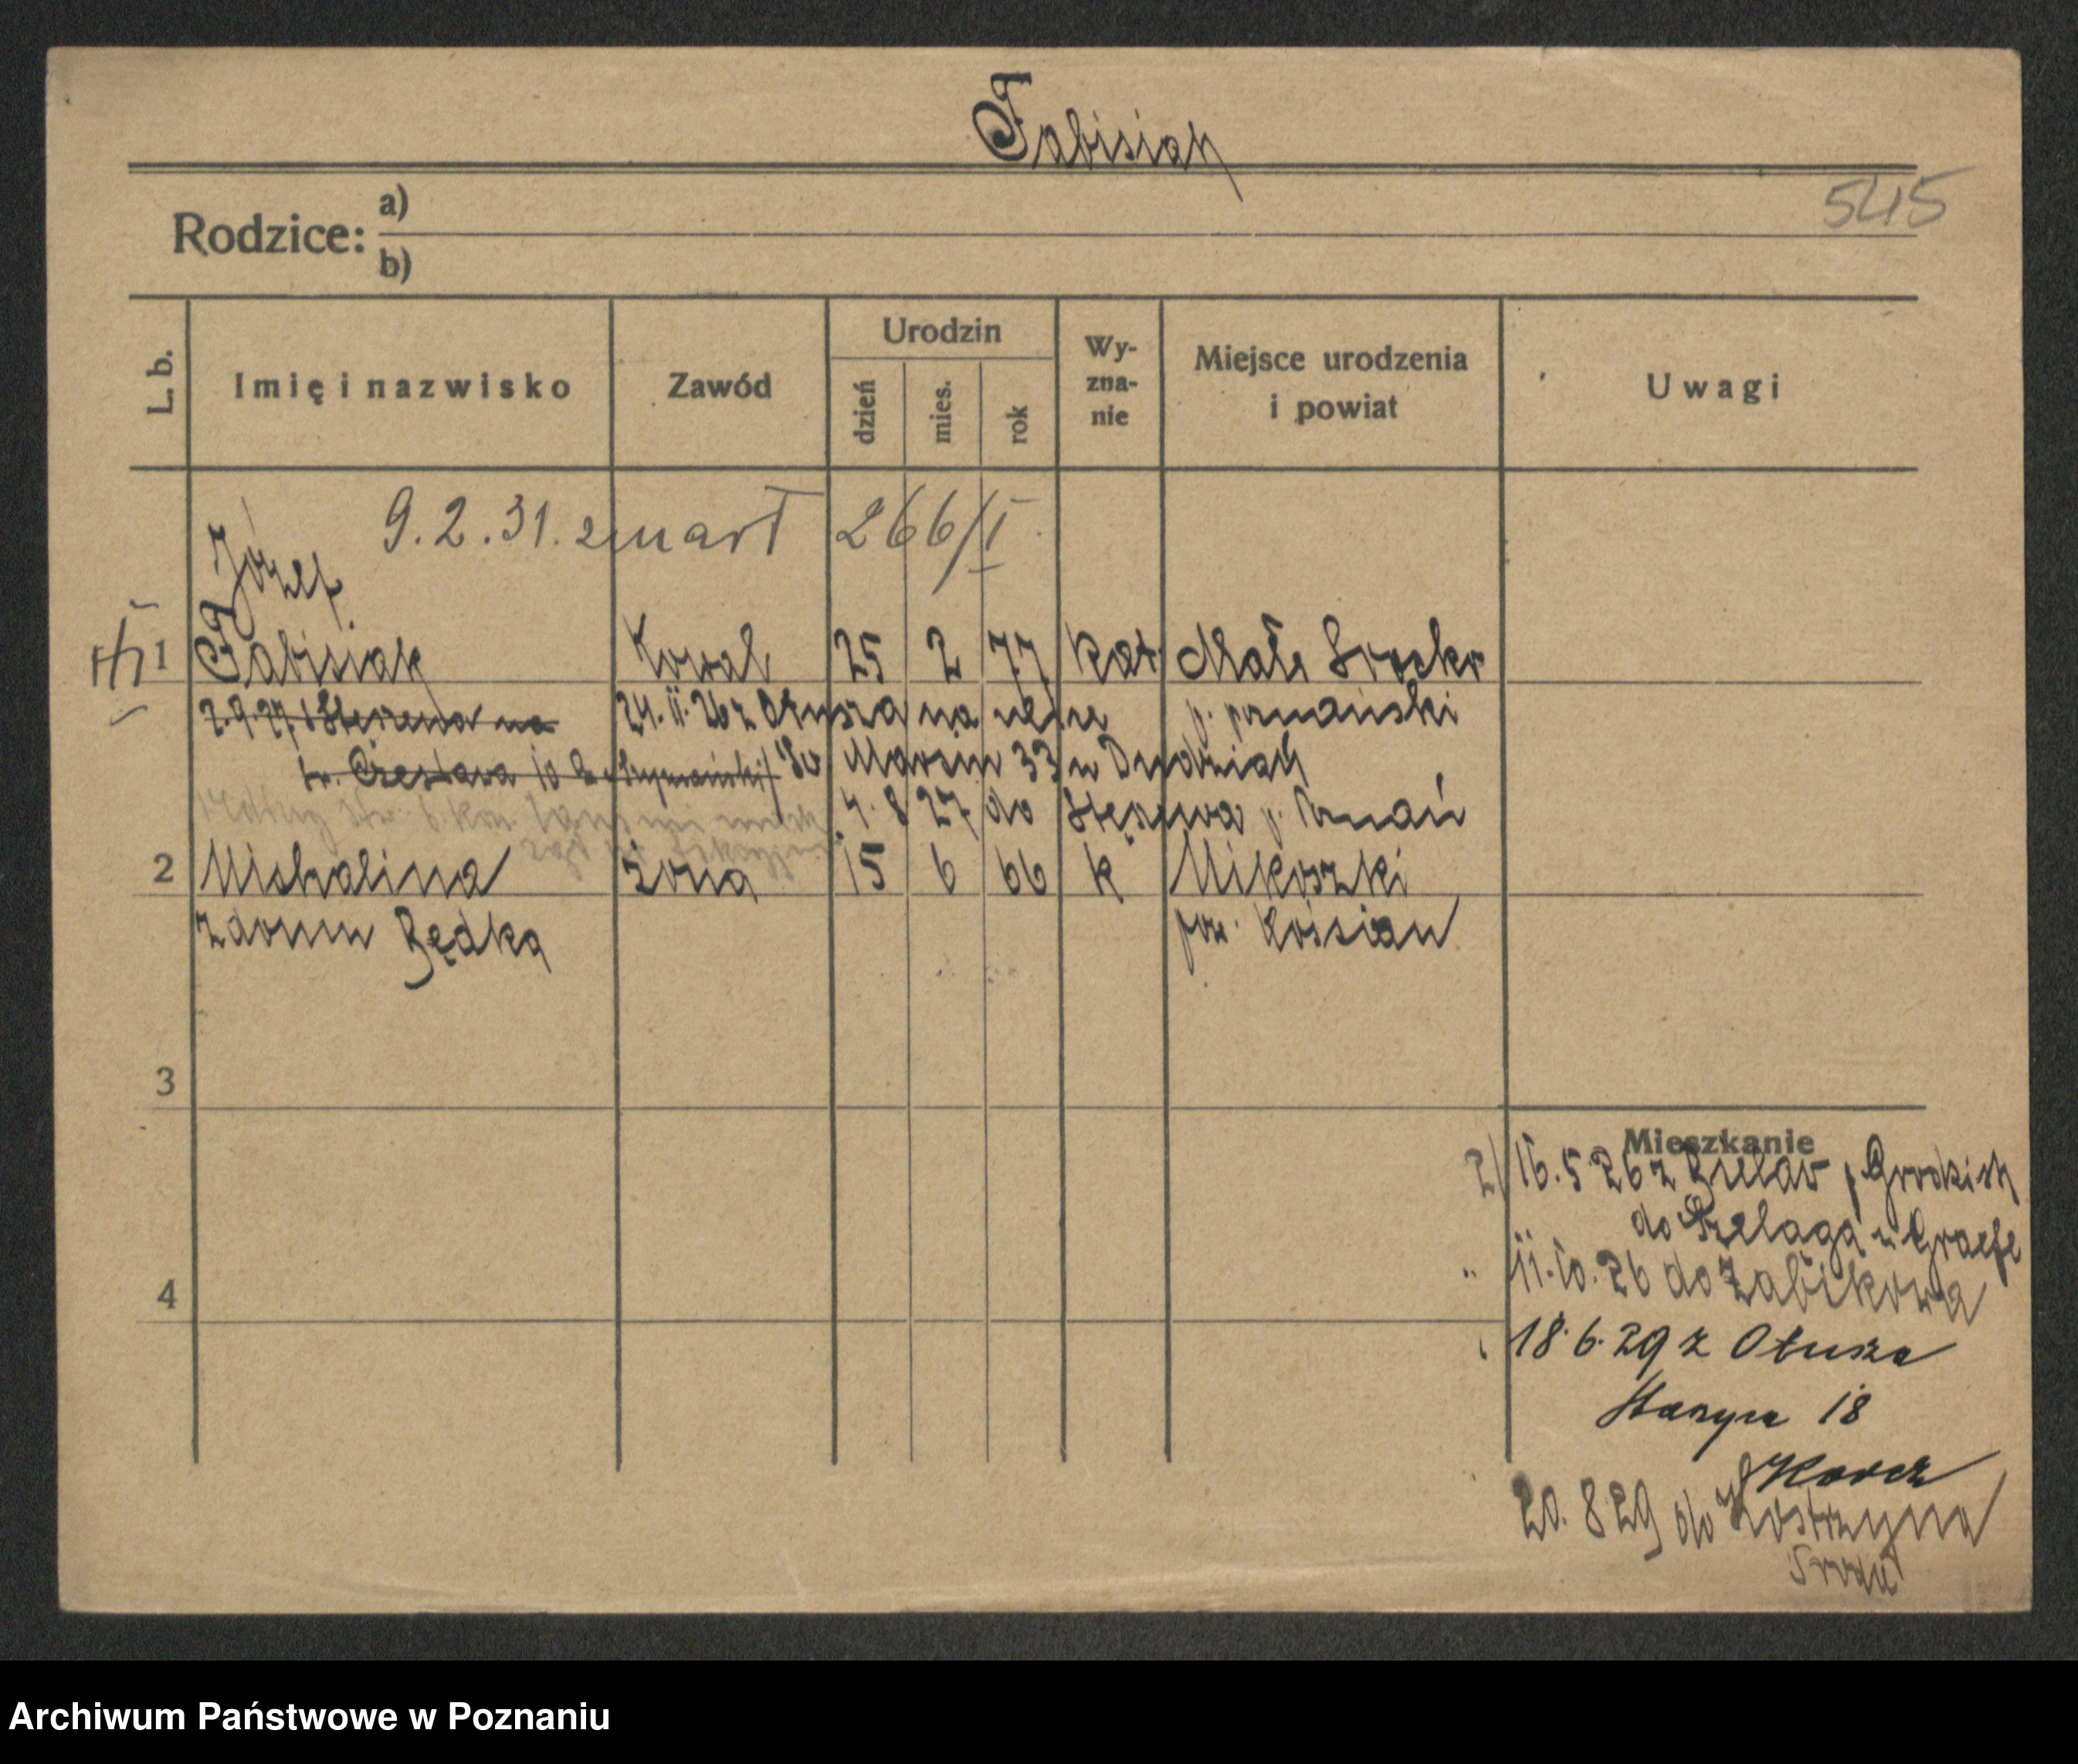 Fabisiak
545
Rodzice: a)
b)
L. b. Imię i nazwisko Zawód Urodzin dzień mies. rok Wy-zna-nie Miejsce urodzenia i powiat Uwagi
9.2.31. zmarł 266/I
Józef
1 Fabisiak Kowal 25 2 77 Kat Małe
2.9.27 na 24.11.26 z Otusza na p. poznański
Czesława 10 Św Marcin 33 u
4.8 27 do Stęszewa p. Poznań
2 Michalina żona 15 6 66 k Mikoszki
z domu Będka pow. Kościan
3
Mieszkanie
2/ 16.5 26 z p Grodzisk
do Szeląga u Graefe
" 11.10.26 do Żabikowa
4
18.6.29 z Otusza
18
20.8 29 do Kostrzyna
Środa
Archiwum Państwowe w Poznaniu